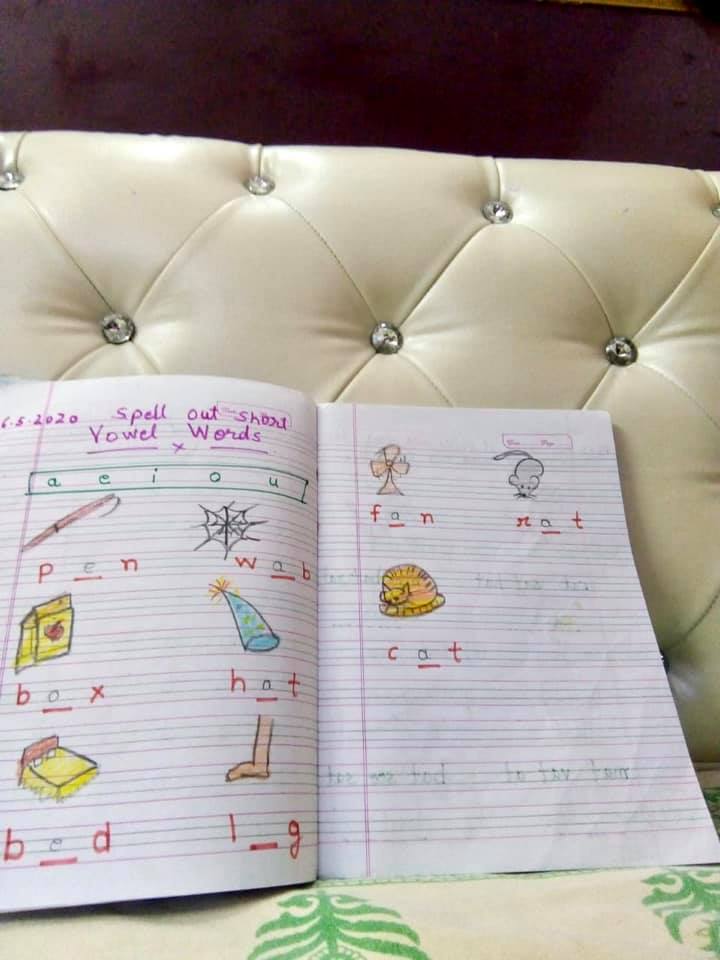 6.5.2020 Spell out Short
Vowel Words
a e i o u
p e n w a b
b o x h a t
b e d l _ g
f a n r a t
c a t